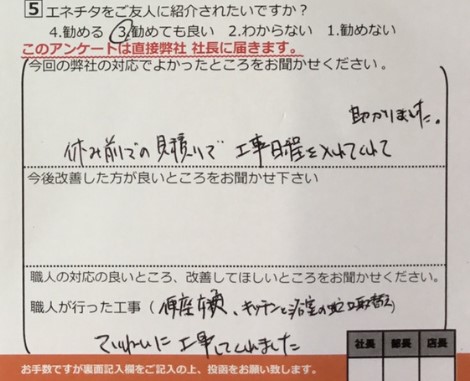 5 エネチタをご友人に紹介されたいですか?
4.勧める 3.勧めても良い 2.わからない 1.勧めない
このアンケートは直接弊社 社長に届きます。
今回の弊社の対応でよかったところをお聞かせください。
助かりました。
休み前での見積りで 工事日程を入れてくれて
今後改善した方が良いところをお聞かせ下さい
職人の対応の良いところ、改善してほしいところをお聞かせください。
職人が行った工事(便座交換、キッチンと浴室の蛇口取替え)
ていねいに工事してくれました
社長 部長 店長
お手数ですが裏面記入欄をご記入の上、投函をお願い致します。